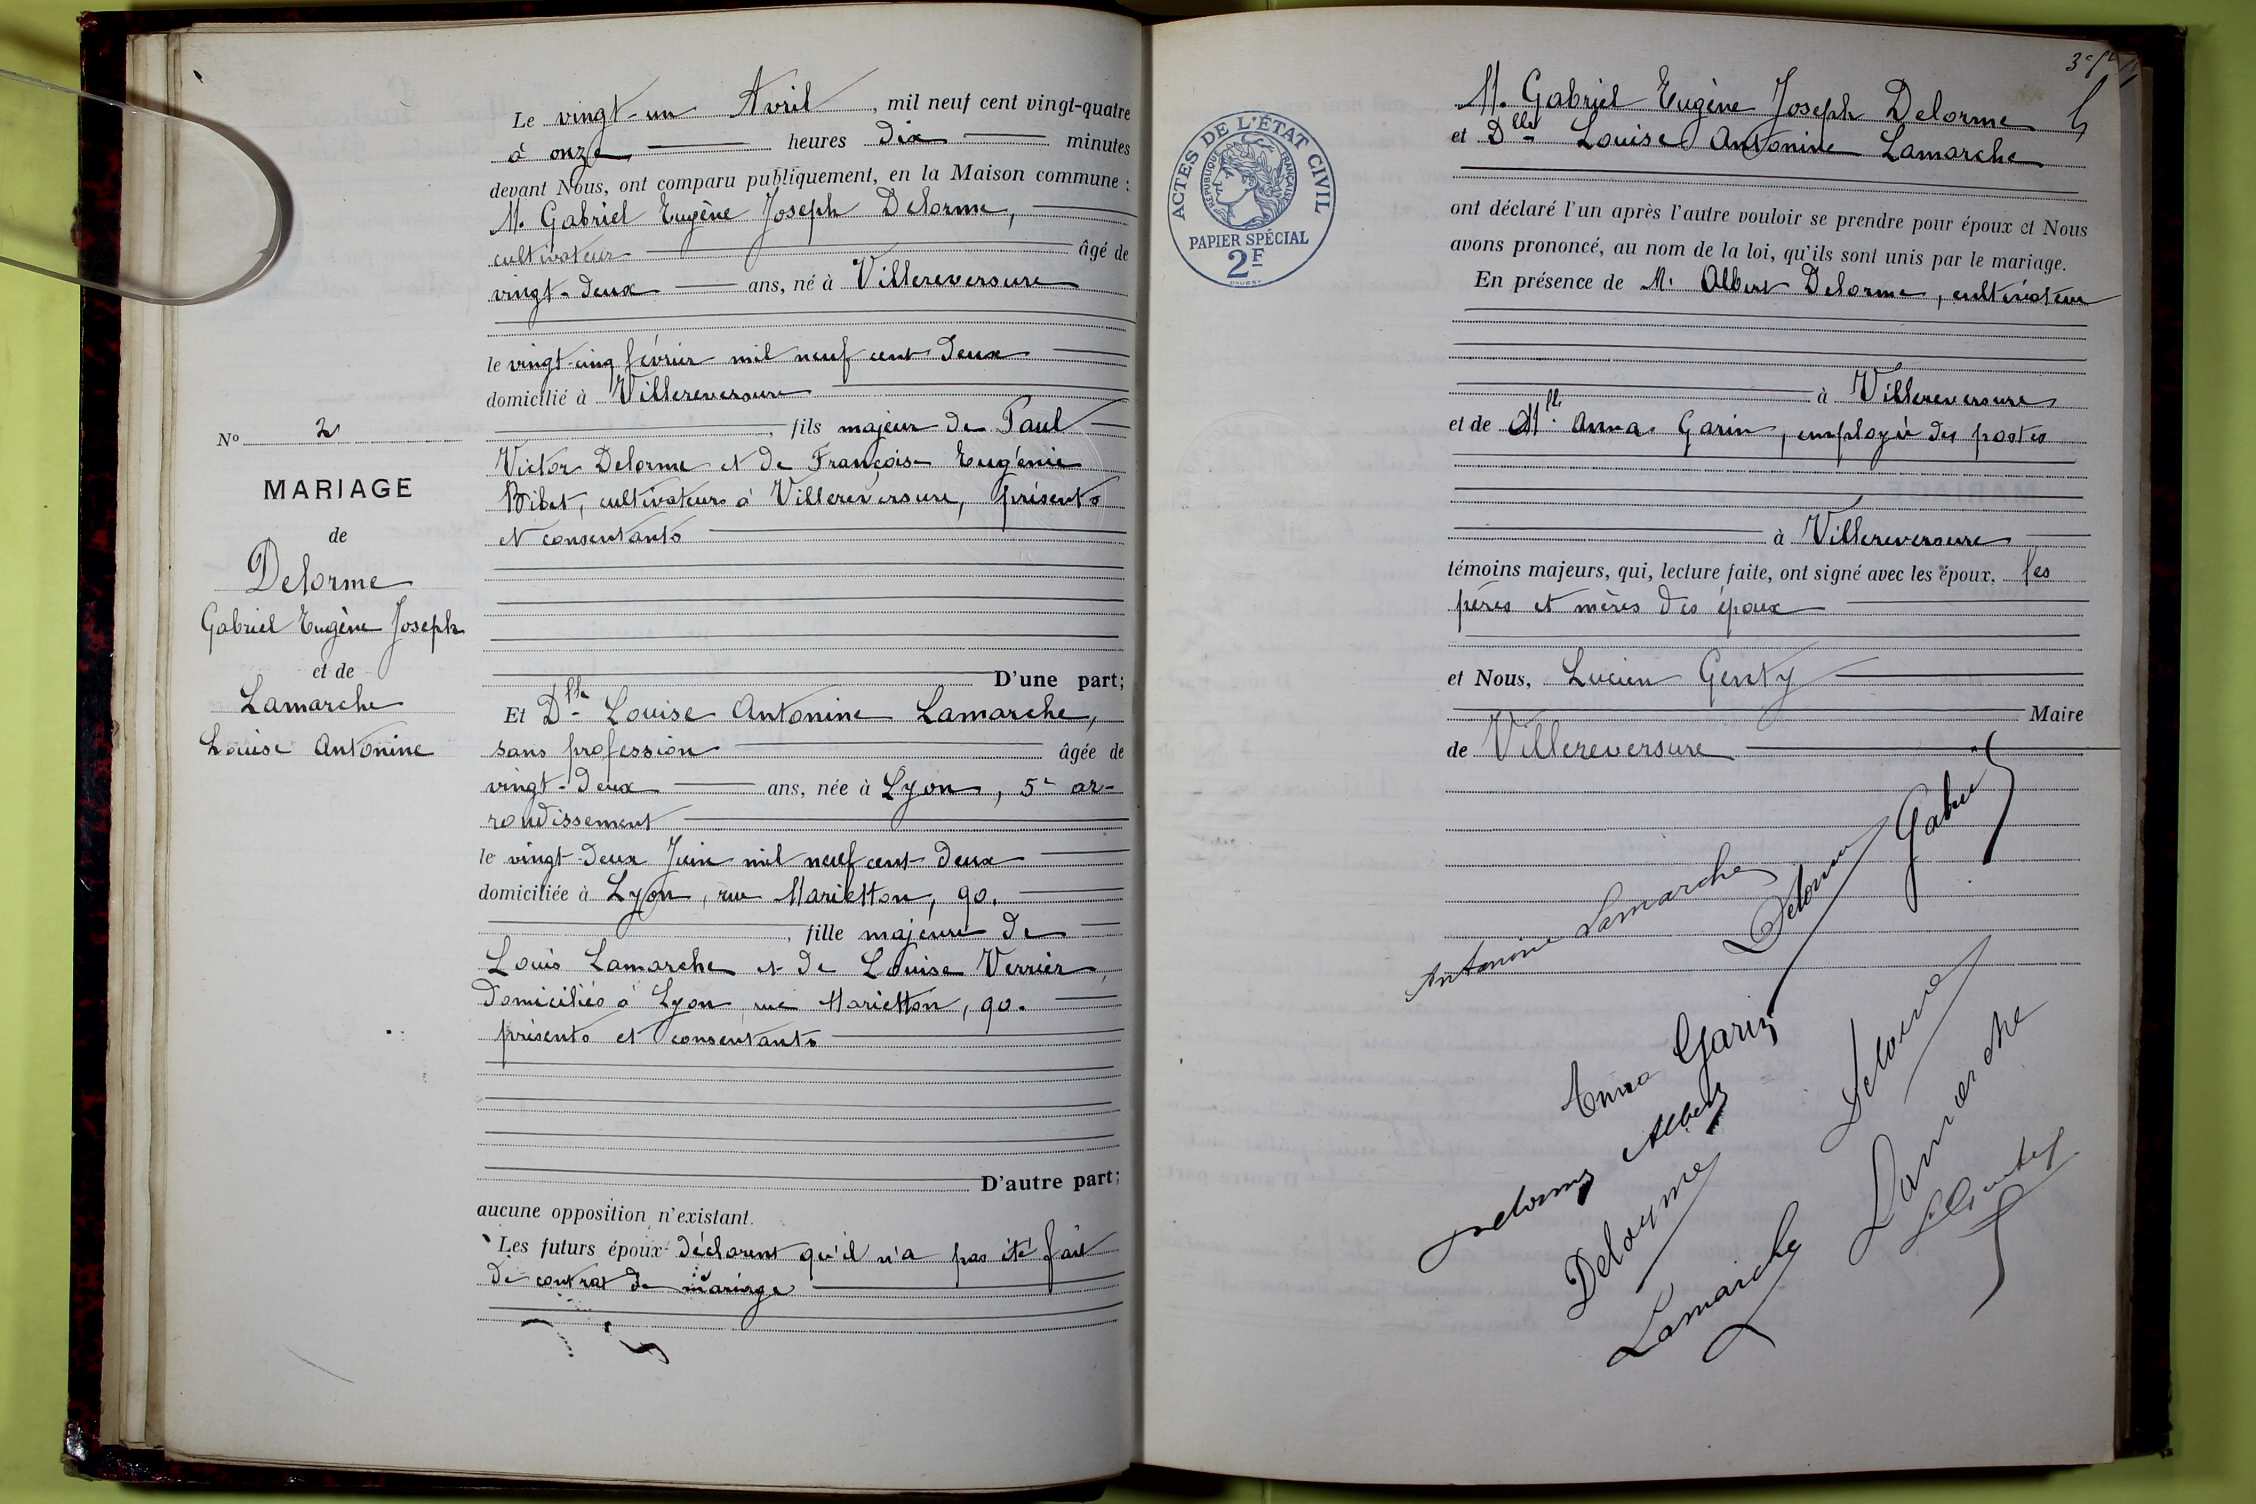 Nº 2
MARIAGE
de
Delorme
Gabriel Eugène Joseph
et de
Lamarche
Louise Antonine
Le vingt-un Avril, mil neuf cent vingt-quatre
à onze heures dix minutes
devant Nous, ont comparu publiquement, en la Maison commune :
M. Gabriel Eugène Joseph Delorme,
cultivateur âgé de
vingt-deux ans, né à Villereversure
le vingt-cinq février mil neuf cent deux
domicilié à Villereversure
, fils majeur de Paul
Victor Delorme et de Françoise Eugénie
Bibet, cultivateurs à Villereversure, présents
et consentants
D'une part;
Et Dlle Louise Antonine Lamarche,
sans profession âgée de
vingt-deux ans, née à Lyon, 5e ar-
rondissement
le vingt-deux Juin mil neuf cent deux
domiciliée à Lyon, rue Marietton, 90.
, fille majeure de
Louis Lamarche et de Louise Verrier,
domiciliés à Lyon rue Marietton, 90.
présents et consentants
D'autre part;
aucune opposition n'existant.
Les futurs époux déclarent qu'il n'a pas été fait
de contrat de mariage
ACTES DE L'ÉTAT CIVIL
RÉPUBLIQUE FRANÇAISE
PAPIER SPÉCIAL
2F
M. Gabriel Eugène Joseph Delorme
et Dlle Louise Antonine Lamarche
ont déclaré l'un après l'autre vouloir se prendre pour époux et Nous
avons prononcé, au nom de la loi, qu'ils sont unis par le mariage.
En présence de M. Albert Delorme, cultivateur
à Villereversure
et de Mlle Anna Garin, employée des postes
à Villereversure
témoins majeurs, qui, lecture faite, ont signé avec les époux, les
pères et mères des époux
et Nous, Lucien Genty
Maire
de Villereversure
Antonine Lamarche
Delorme Gabriel
Anna Garin
Delorme Albert
Delorme
Delorme
Lamarche
Lamarche